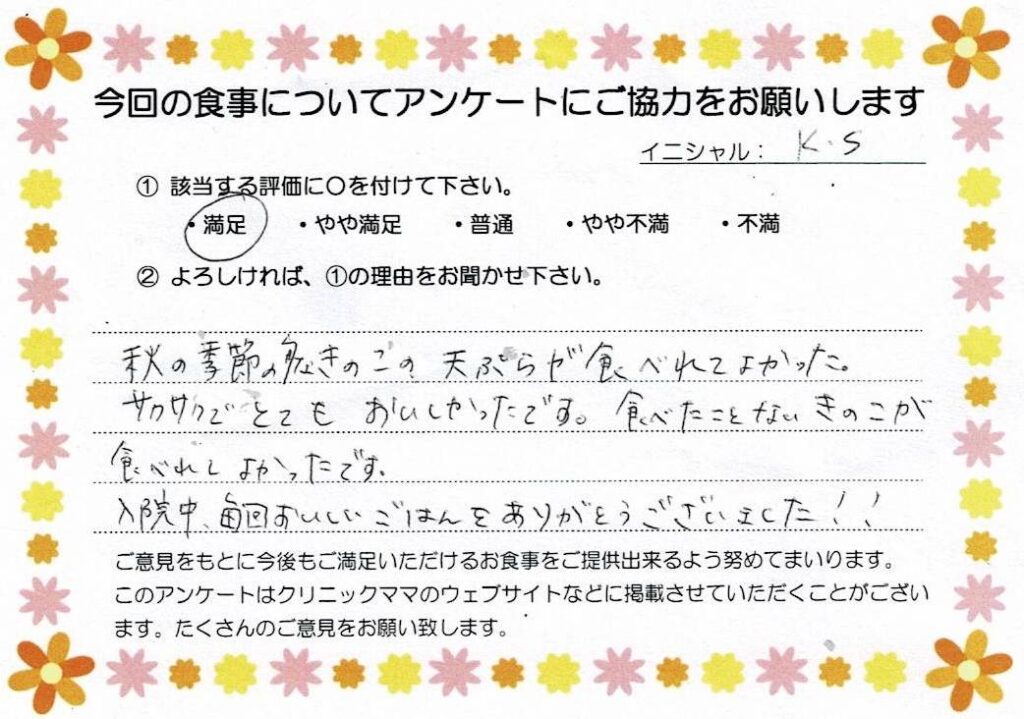 今回の食事についてアンケートにご協力をお願いします
イニシャル： K.S
① 該当する評価に〇を付けて下さい。
・満足 ・やや満足 ・普通 ・やや不満 ・不満
② よろしければ、①の理由をお聞かせ下さい。
秋の季節の きのこの 天ぷらが食べれてよかった。
サクサクでとても おいしかったです。食べたことないきのこが
食べれてよかったです。
入院中、毎回おいしいごはんをありがとうございました！！
ご意見をもとに今後もご満足いただけるお食事をご提供出来るよう努めてまいります。
このアンケートはクリニックママのウェブサイトなどに掲載させていただくことがござい
ます。たくさんのご意見をお願い致します。